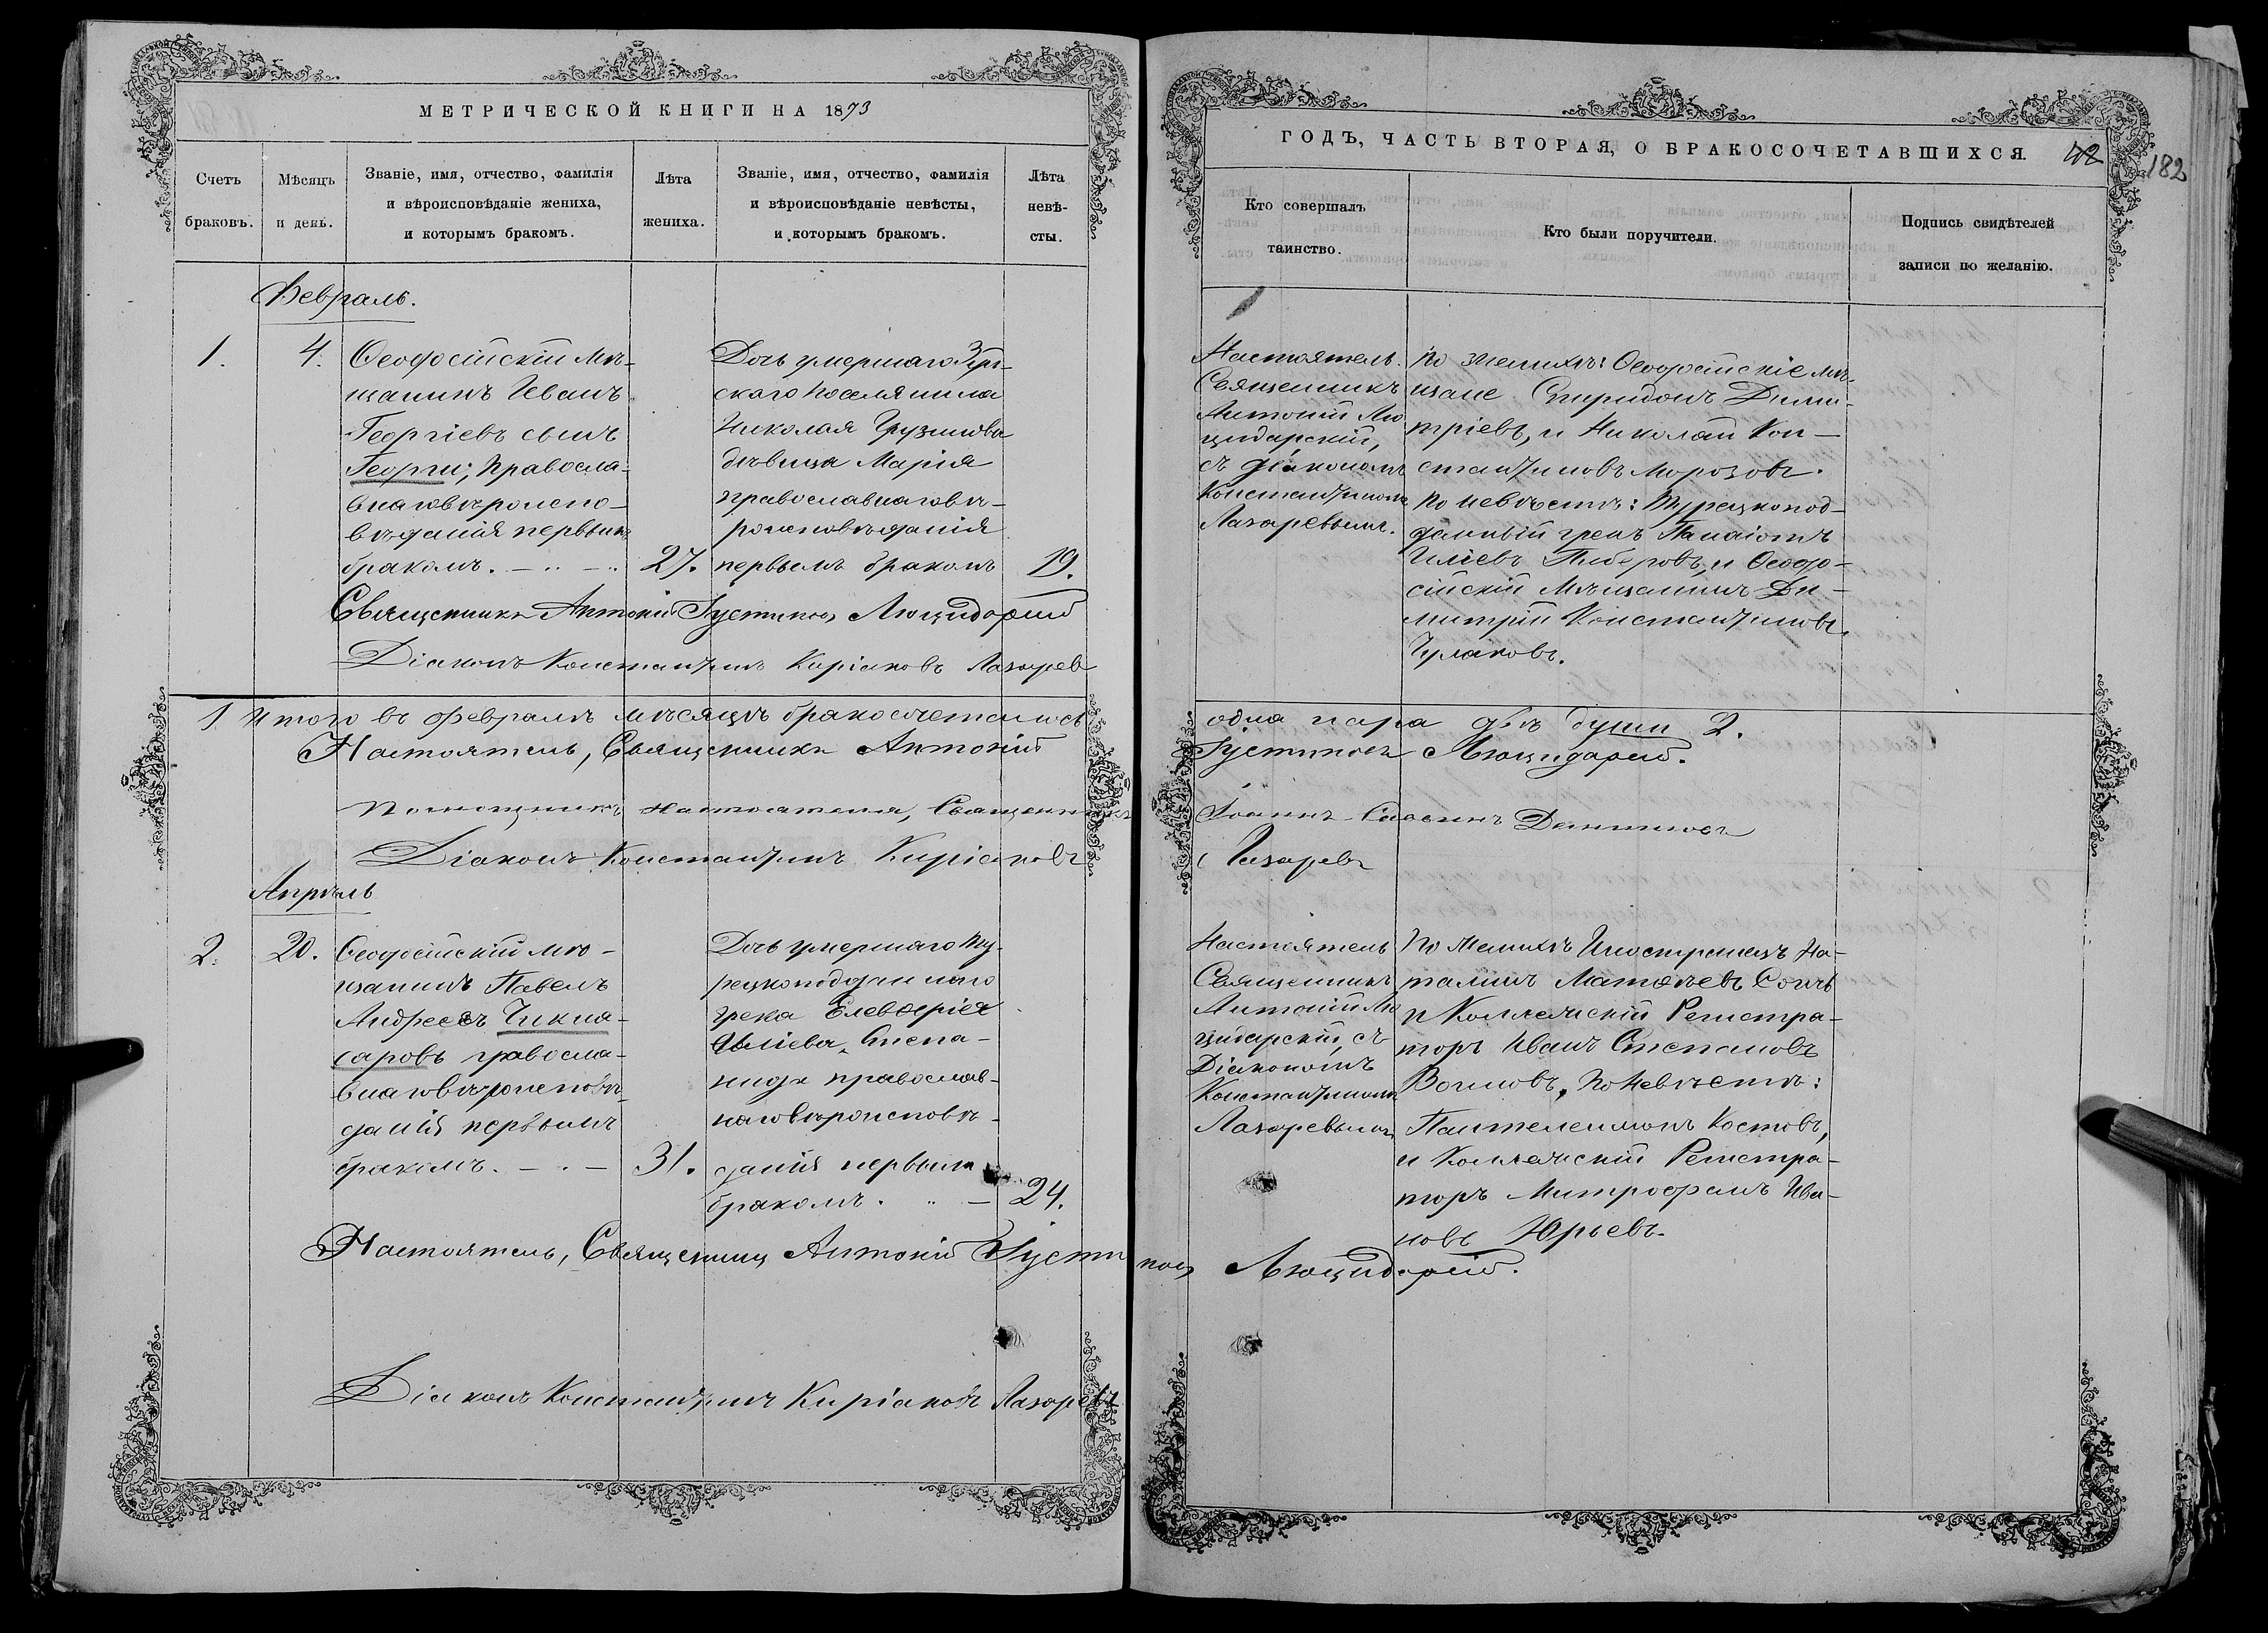 МЕТРИЧЕСКОЙ КНИГИ НА 1873
Счетъ браковъ.
Мѣсяцъ и день.
Званіе, имя, отчество, фамилія
и вѣроисповѣданіе жениха,
и которымъ бракомъ.
Лѣта жениха.
Званіе, имя, отчество, фамилія
и вѣроисповѣданіе невѣсты,
и которымъ бракомъ.
Лѣта невѣ-
сты.
Февраль.
1.
4.
Ѳеодосійскій мѣ-
щанинъ Иванъ
Георгіевъ сынъ
Георги; православ-
наго вѣроиспо-
вѣданія первымъ
бракомъ.
27.
Дочь умершаго
скаго поселянина
Николая Грузинова
дѣвица Марія
православнаго вѣ-
роисповѣданія
первымъ бракомъ
19.
Священникъ Антоній Іустиновъ Люцидарскій
Діаконъ Константинъ Киріаковъ Лазаревъ
1. Итого въ февралѣ мѣсяцѣ бракосочеталось
Настоятель, Священникъ Антоній
Помощникъ Настоятеля, Священникъ
Діаконъ Константинъ Киріаковъ
Апрѣль
2.
20.
Ѳеодосійскій мѣ-
щанинъ Павелъ
Андреевъ Чикна-
саровъ православ-
наго вѣроисповѣ-
данія первымъ
бракомъ.
31.
Дочь умершаго Ту-
рецкоподданнаго
грека Елевѳерія
Иліева
православ-
наго вѣроисповѣ-
данія первымъ
бракомъ.
24.
Настоятель, Священникъ Антоній Іустиновъ Люцидарскій.
Діаконъ Константинъ Киріаковъ Лазаревъ
ГОДЪ, ЧАСТЬ ВТОРАЯ, О БРАКОСОЧЕТАВШИХСЯ.
42
182
Кто совершалъ
таинство.
Кто были поручители.
Подпись свидѣтелей
записи по желанію.
Настоятель
Священникъ
Антоній Лю
цидарскій,
съ діакономъ
Константиномъ
Лазаревымъ.
По женихѣ: Ѳеодосійскіе мѣ-
щане Спиридонъ Дими-
тріевъ, и Николай Кон-
стантиновъ Морозовъ.
По невѣстѣ: Турецкопод-
данный грекъ Панаіотъ
Иліевъ и Ѳеодо-
сійскій мѣщанинъ Ди-
митрій Константиновъ
Чулаковъ.
одна пара двѣ души 2.
Іустиновъ Люцидарскій.
Іоаннъ Даниловъ
Лазаревъ
Настоятель
Священникъ
Антоній Лю
цидарскій, съ
Діакономъ
Константиномъ
Лазаревымъ
По женихѣ Иностранецъ На-
талинъ Матвѣевъ
и Коллежскій Регистра-
торъ Иванъ Степановъ
По невѣстѣ:
Пантелеимонъ Костовъ,
и Коллежскій Регистра-
торъ Митрофанъ Ива-
новъ Юрьевъ.